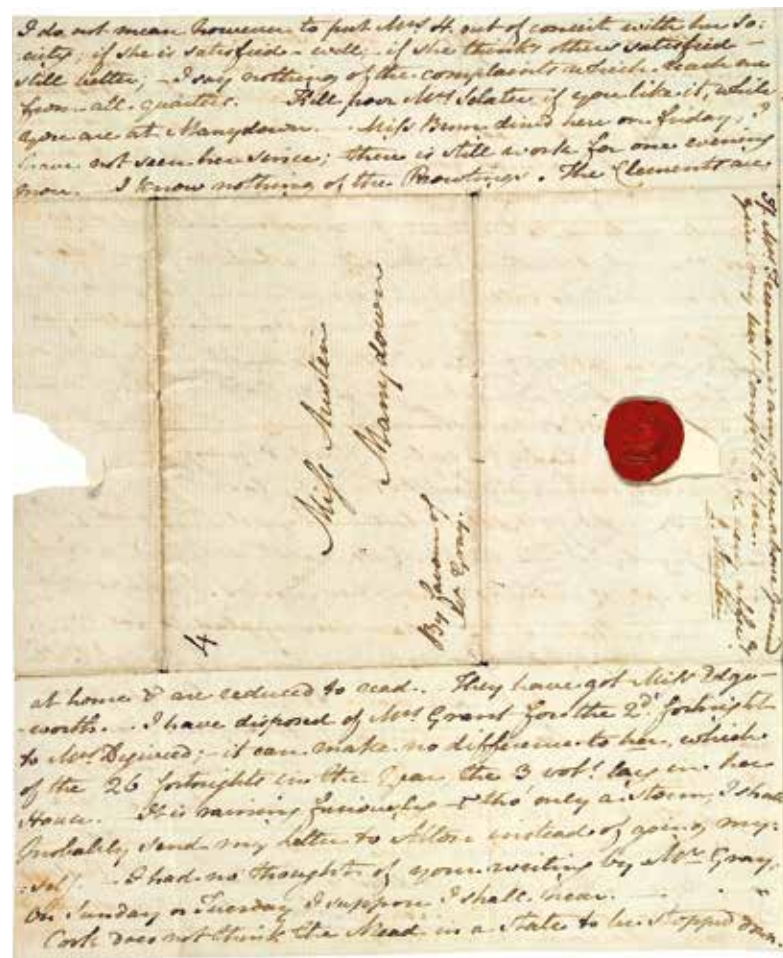 I do not mean however to put Mrs H. out of conceit with her So-
ciety; if she is satisfied - well; - if she thinks others satisfied -
still better; - I say nothing of the complaints which reach me
from all quarters. Kill poor Mrs Sclater if you like it, while
you are at Manydown. - Miss Benn dined here on friday, I
have not seen her since; - there is still work for one evening
more. I know nothing of the Prowtings. The Clements are
Miss Austen
Manydown
By favour of
Mr Gray.
4
If Mrs Freeman is anywhere above ground
give my best Compts to her.
J. Austen
at home & are reduced to read. They have got Miss Edge-
-worth. - I have disposed of Mrs Grant for the 2d fortnight
to Mrs Digweed; - it can make no difference to her, which
of the 26 fortnights in the Year, the 3 vols lay in her
House. - It is raining furiously - & tho' only a storm, I shall
probably send my letter to Alton instead of going my-
-self. - I had no thought of your writing by Mr Gray.
On Sunday or Tuesday I suppose I shall hear. -
Cook does not think the Mead in a State to be stopped down.